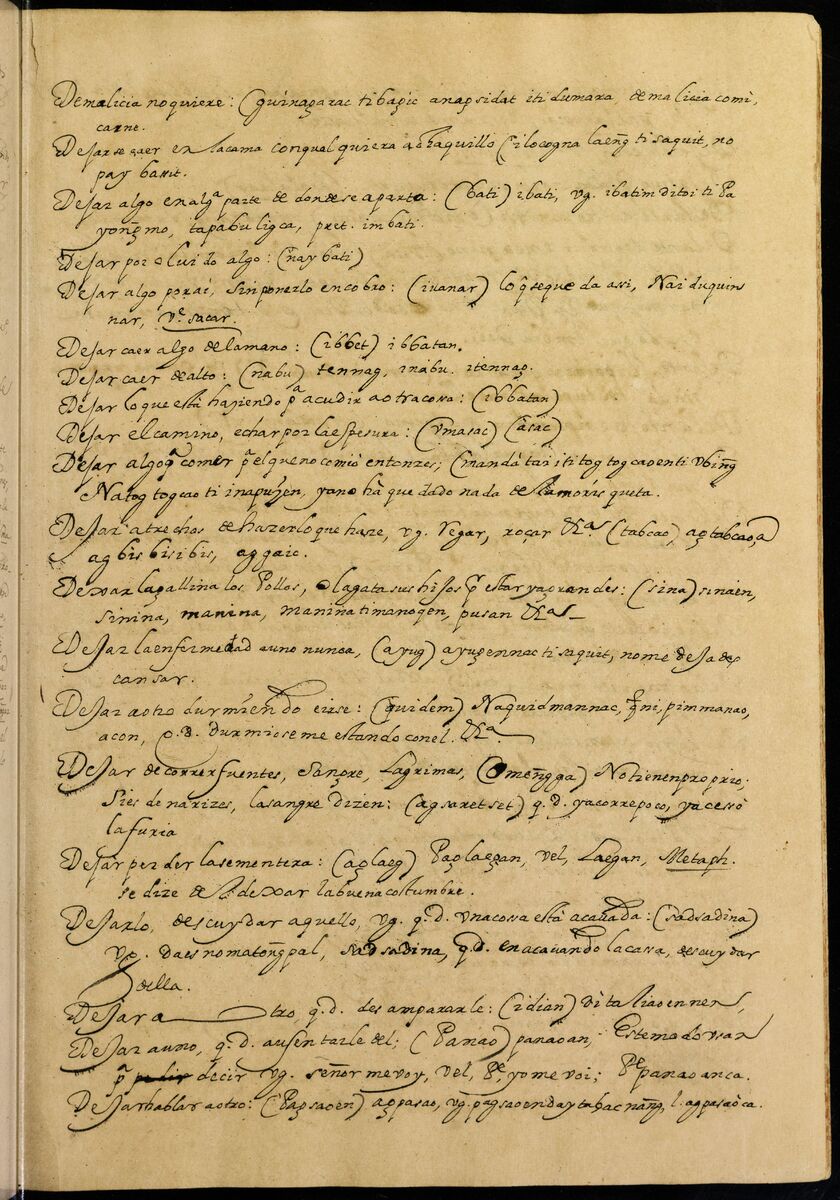 Demalicia no quiere: (guinaga rac ti bagic anagsidat iti dumara de malicia comi,
carne.
Dejarse caer en la cama con qual quiera achaquillo (ilocogna laeng̃ ti saquit, no
pay bassit.
Dejar algo en algª parte de donde se aparta: (bati) ibati, vg. ibatim ditoi ti Pa
yong̃mo, tapabuligca, pret. imbati.
Dejar por olvido algo: (naybati)
Dejar algo por ai, sin ponerlo en cobro: (iuanar) lo q̃ se queda assi, Nai
nar, vᵉ sacar.
Dejar caer algo de la mano: (ibbet) ibbatan.
Dejar caer de alto: (nabu) tennag, inabu. itennag.
Dejar lo que està haziendo pª acudir a otra cossa: (ibbatan)
Dejar el camino, echar por la espesura: (vmasac) (asac)
Dejar algo qᵉ comer pª el que no comiò entonzes;
Natog togcao ti yano hà que dado nada de
Dejar à trechos de hazer lo que haze, vg. Vegar, roçar &ª. (tabcao) agtabcaoca
ag bis bisibis, aggaic.
Dexar la gallina los Pollos, o la gata sus hijos pʳ estar ya grandes: (sina) sinaen,
sinina, manina, manina ti manogen, pusan &ª
Dejar la enfermedad a uno nunca, (ayug) ayugennac ti saquit, no me deja des
cansar.
Dejar a otro durmien do e irse: (quidem) Naquidmannac, pimmanao,
acon, q.d. Durmiose me estando con el. &ª
Dejar de correr fuentes, sangre, lagrimas, No tienen proprio;
sies de narizes, la sangre dizen: (agsaretset) q.d. ya corre poco, ya cessò
la furia
Dejar perder la sementera: (aglaeg) Paglaegan, vel, Laegan, Metaph.
se dize del dexar la buena costumbre.
Dejarlo, descuydar aquello, vg. q.d. vna cossa està acavada: (sadsadina)
vg. daes nomatong̃pal, sadsadina, q.d. en acavando la cassa, descuydar
della.
Dejar a otro, q.d. desampararle: (idian)
Dejar a uno, q.d. ausentarse del; (Panao) panaoan, Este modo vsan
pª decir vg. señor me voy, vel, Pᵉ, yo me voi; Pᵉ panaoanca.
Dejar hablar a otro: (Pagsaoen) agpasao,